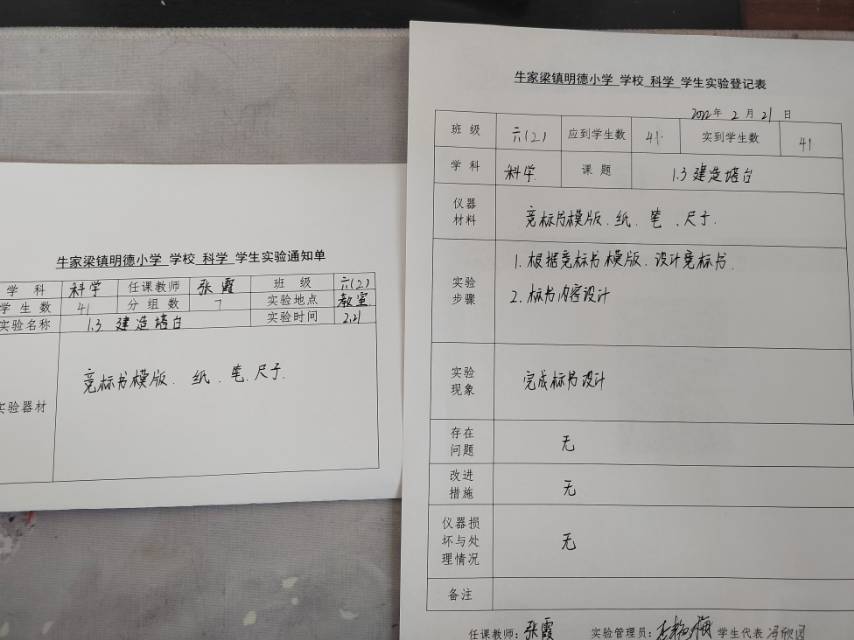 牛家梁镇明德小学 学校 科学 学生实验通知单
学 科 科学 任课教师 张霞 班 级 六(2)
学 生 数 41 分 组 数 7 实验地点 教室
实验名称 1.3 建造塔台 实验时间 2.21
实验器材 竞标书模版、纸、笔、尺子.
牛家梁镇明德小学 学校 科学 学生实验登记表
2022年 2 月 21 日
班 级 六(2) 应到学生数 41 实到学生数 41
学 科 科学 课 题 1.3 建造塔台
仪器
材料 竞标书模版、纸、笔、尺子.
实验
步骤
1. 根据竞标书模版、设计竞标书.
2. 标书内容设计
实验
现象 完成标书设计
存在
问题 无
改进
措施 无
仪器损
坏与处
理情况 无
备注
任课教师: 张霞 实验管理员: 学生代表